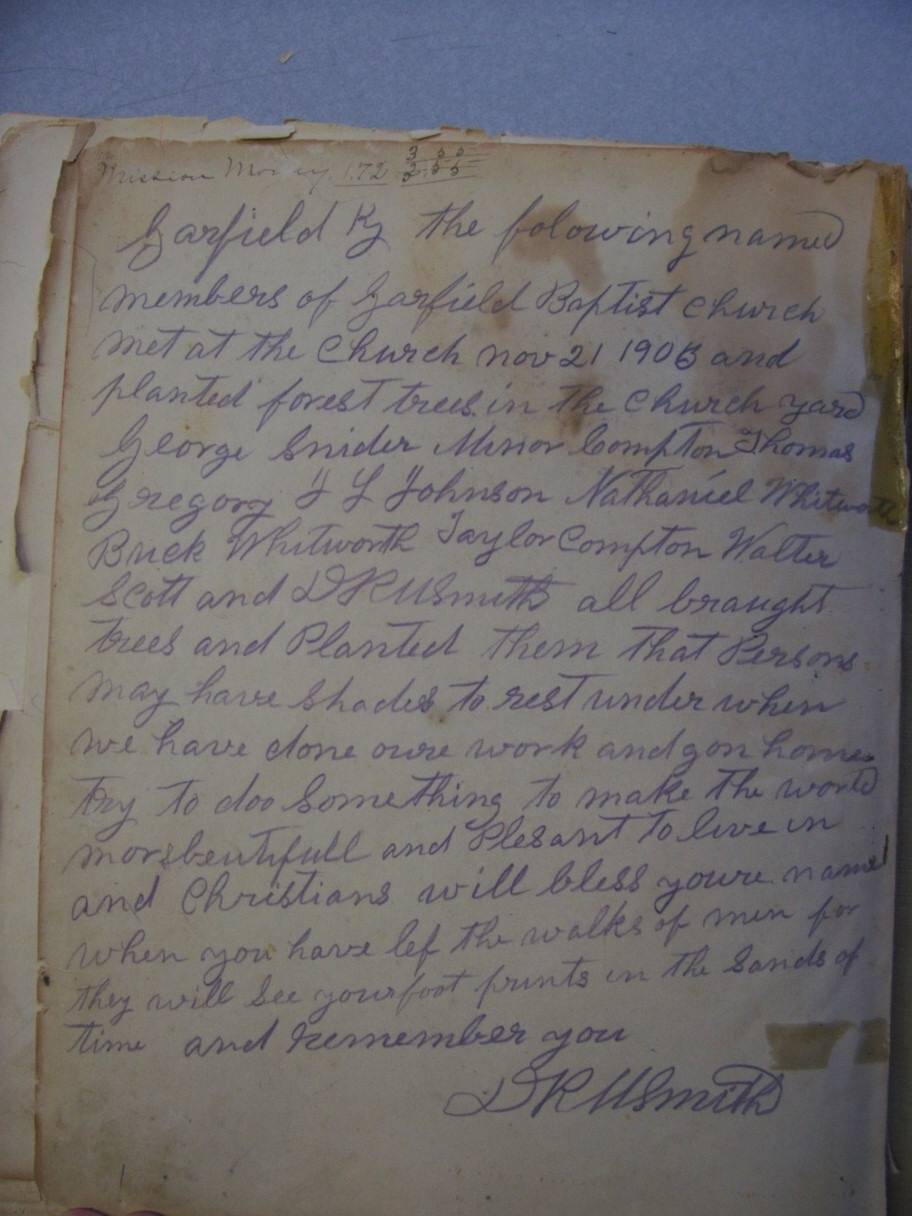 Mission Money 1.72
Garfield Ky the folowing named
members of Garfield Baptist Church
met at the Church nov 21 1903 and
planted forest trees in the Church yard
George Snider Minor Compton Thomas
Gregory J L Johnson Nathaniel Whitworth
Buck Whitworth Taylor Compton Walter
Scott and D R U Smith all braught
trees and Planted them that Persons
may have shades to rest under when
we have done oure work and gon home
try to doo Something to make the world
mor beutifull and Plesant to live in
and Christians will bless youre name
when you have lef the walks of men for
they will See your foot prints in the Sands of
time and remember you
D R U Smith